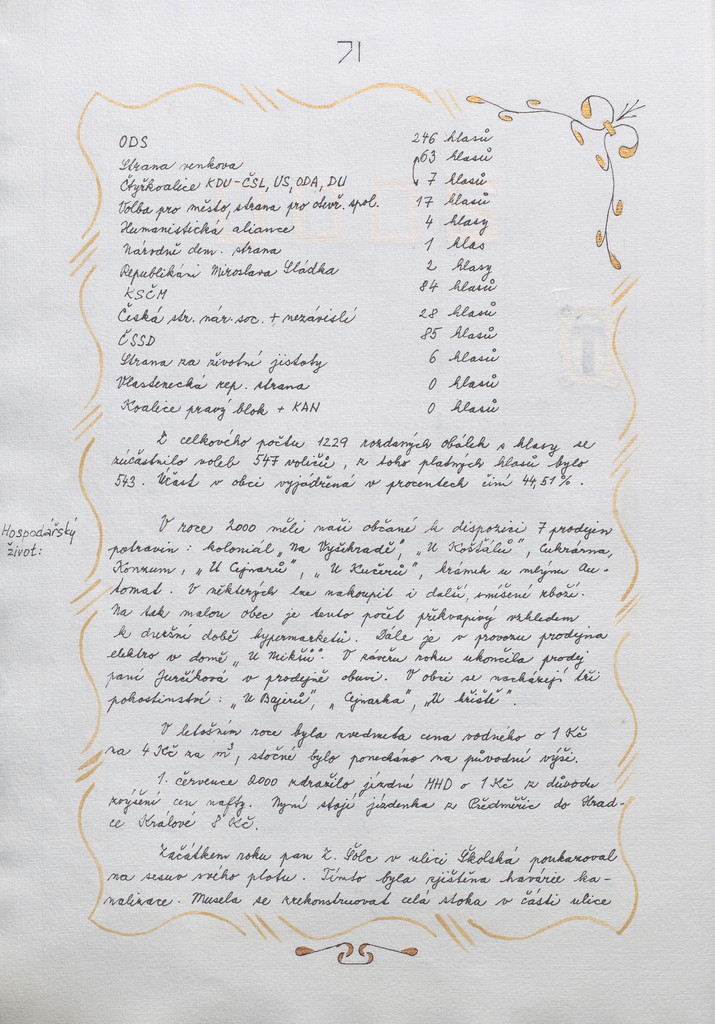 71
ODS 246 hlasů
Strana venkova 63 hlasů
Čtyřkoalice KDU-ČSL, US, ODA, DU 7 hlasů
Volba pro město, strana pro otevř. spol. 17 hlasů
Humanistická aliance 4 hlasy
Národně dem. strana 1 hlas
Republikáni Miroslava Sládka 2 hlasy
KSČM 84 hlasů
Česká str. nár. soc. + nezávislí 28 hlasů
ČSSD 85 hlasů
Strana za životní jistoty 6 hlasů
Vlastenecká rep. strana 0 hlasů
Koalice pravý blok + KAN 0 hlasů
Z celkového počtu 1229 rozdaných obálek s hlasy se
zúčastnilo voleb 547 voličů, z toho platných hlasů bylo
543. Účast v obci vyjádřená v procentech činí 44,51%.
Hospodářský
život:
V roce 2000 měli naši občané k dispozici 7 prodejen
potravin: koloniál „Na Vyšehradě", „U Košťálů", Cukrárna,
Konzum, „U Cejnarů", „U Kučerů", krámek u mlýna Au-
tomat. V některých lze nakoupit i další, smíšené zboží.
Na tak malou obec je tento počet překvapivý vzhledem
k dnešní době hypermarketů. Dále je v provozu prodejna
elektro v domě „U Mikšů". V závěru roku ukončila prodej
paní Jurčíková v prodejně obuvi. V obci se nacházejí tři
pohostinství: „U Bajerů", „Cejnarka", „U hřiště".
V letošním roce byla zvednuta cena vodného o 1 Kč
na 4 Kč za m³, stočné bylo ponecháno na původní výši.
1. července 2000 zdražilo jízdné MHD o 1 Kč z důvodu
zvýšení cen nafty. Nyní stojí jízdenka z Předměřic do Hrad-
ce Králové 8 Kč.
Začátkem roku pan Z. Šolc v ulici Školská poukazoval
na sesuv svého plotu. Tímto byla zjištěna havárie ka-
nalizace. Musela se zrekonstruovat celá stoka v části ulice